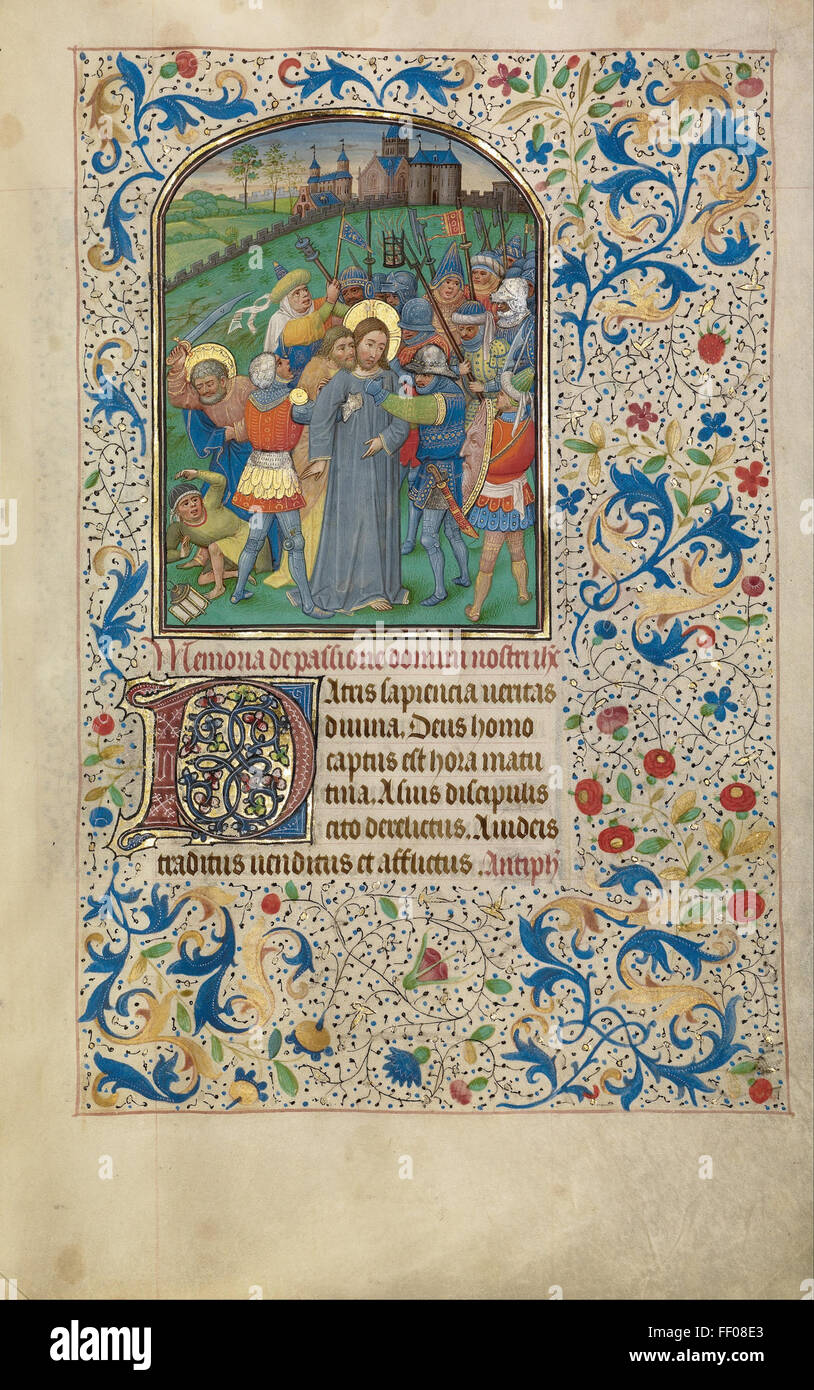 Memoria de passione domini nostri ihc
Patris sapiencia ueritas
diuina. Deus homo
captus est hora matu
tina. A suis discipulis
cito derelictus. A iudeis
traditus uenditus et afflictus. Antiph
a
alamy
a
a
a
alamy
Image ID: FF08E3
www.alamy.com